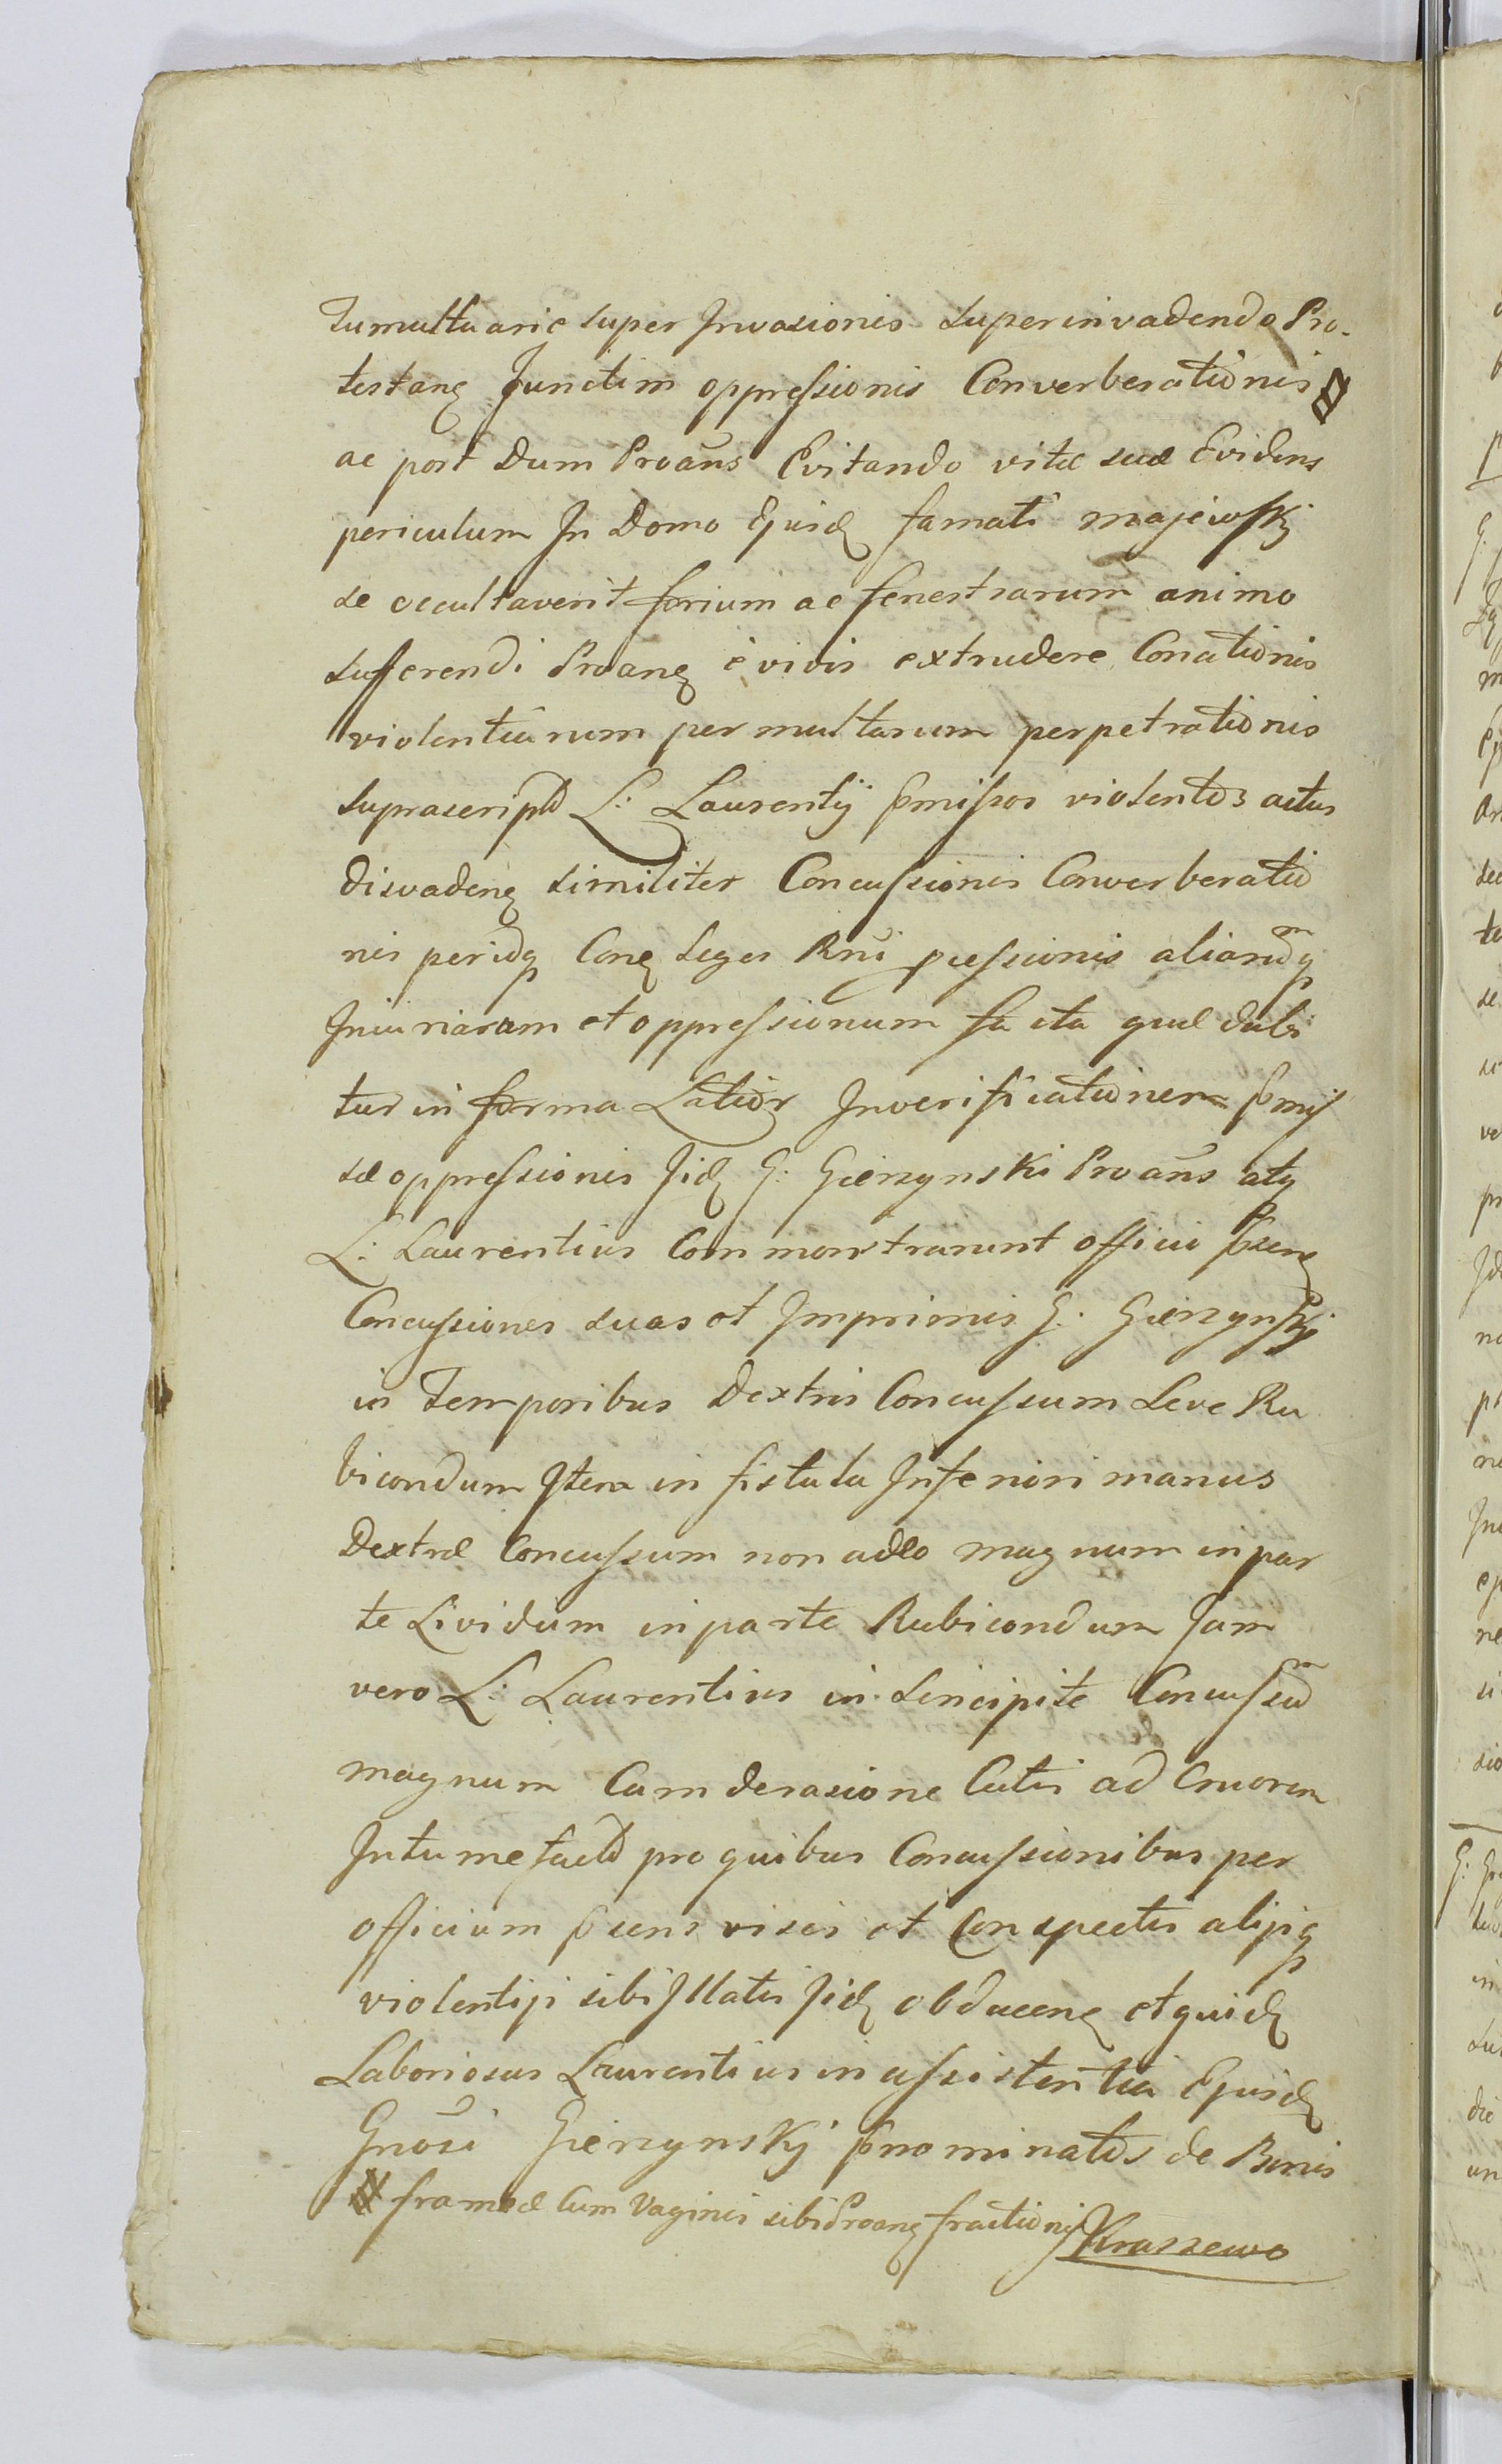 Tumultuarie super Invasionis superinvadendo Pro-
testanę Junctim oppressionis Converberationis #
ac post Dum Proans Evitando vitæ suæ Evidens
periculum In Domo Ejusd famati Majewskj
se occultaverit forium ac fenestrarum animo
sufferendi Proanę è vivis extrudere Conationis
violentiarum per multarum perpetrationis
suprascripto L: Laurentij pmissos violentos actus
disvadenę similiter Concussionis Converberatio
nis peridq Conę Leges Rni pcessionis aliarumq
Iniuriarum et oppressionum facta quæ dabi
tur in forma Latiori In verificationem pmis
sæ oppressionis Jid G: Gierzynski Proans atq
L: Laurentius Commonstrarunt officio psenę
Concussiones suas et Imprimis G: Gierzynskj
in Temporibus Dextris Concussum Leve Ru
bicondum Item in fistula Inferiori manus
Dextræ Concussum non adeo magnum in par
te Lividum in parte Rubicondum Jam
vero L: Laurentius in sincipite Concussum
magnum Cum derasione Cutis ad Cruorem
Intumefacto pro quibus Concussionibus per
officium psens visis et Conspectis alijsq
violentijs sibi Illatis Jid obducenę et quid
Laboriosus Laurentius in assistentia Ejusd
Gnosi Gierzynskj pnominatus de Bonis
# frameæ Cum Vaginis sibi Proanę fractionis Kraszewo